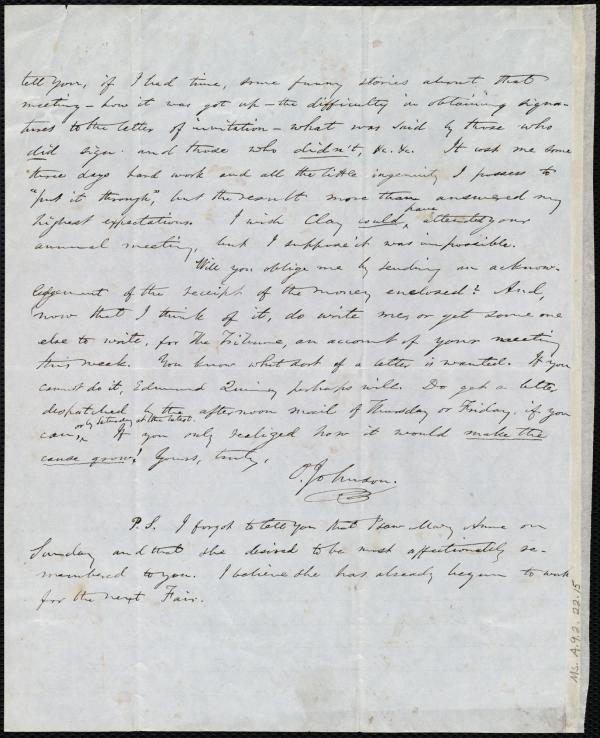 tell you, if I had time, some funny stories about that
meeting – how it was got up – the difficulty in obtaining signa-
tures to the letter of invitation – what was said by those who
did sign and those who didn't, &c. &c. It cost me some
three days hard work and all the little ingenuity I possess to
"put it through", but the result more than answered my
highest expectations. I wish Clay could have attended your
annual meeting, but I suppose it was impossible.
Will you oblige me by sending an acknow-
ledgement of the receipt of the money enclosed? And,
now that I think of it, do write me, or get some one
else to write, for The Tribune, an account of your meeting
this week. You know what sort of a letter is wanted. If you
cannot do it, Edmund Quincy perhaps will. Do get a letter
despatched by the afternoon mail of Thursday or Friday, if you
can, or by Saturday at the latest. If you only realized how it would make the
cause grow! Yours, truly,
O. Johnson.
P.S. I forgot to tell you that I saw Mary Anne on
Sunday and that she desired to be most affectionately re-
membered to you. I believe she has already begun to work
for the next Fair.
Ms. A.9.2.22.15